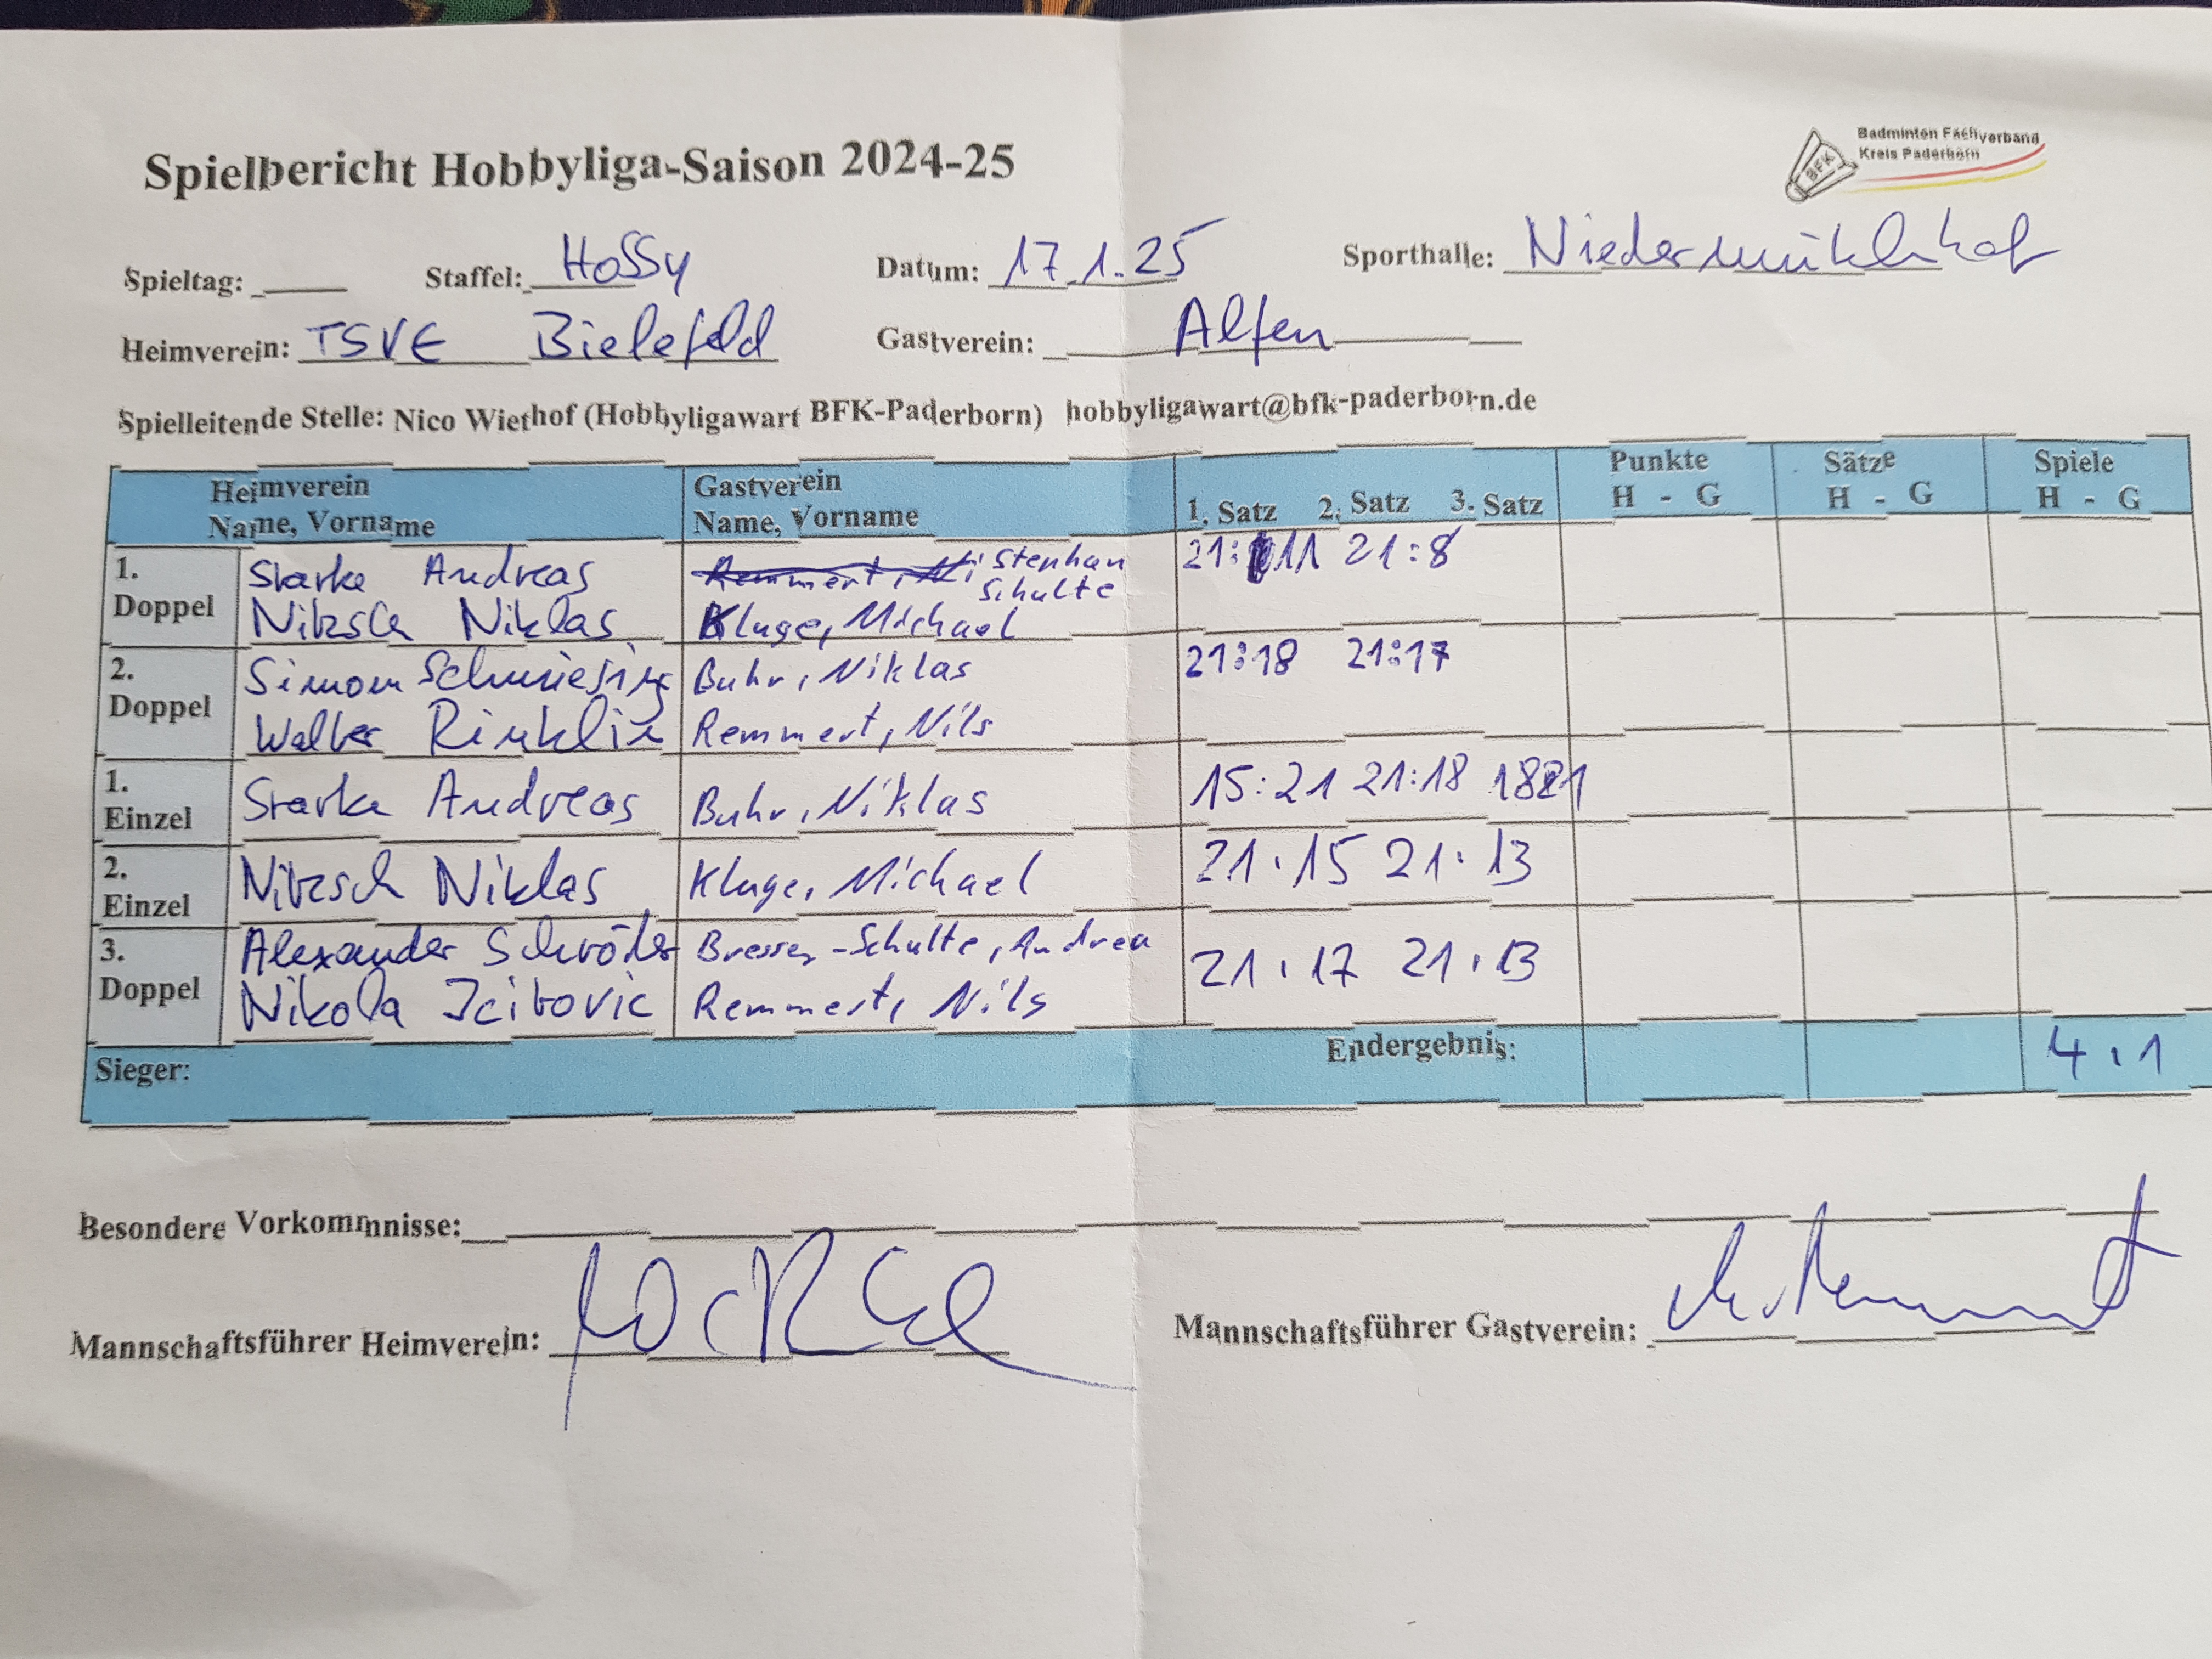 Spielbericht Hobbyliga-Saison 2024-25
Badminton Fachverband
Kreis Paderborn
BFK
Spieltag: Staffel: Hobby Datum: 17.1.25 Sporthalle: Niedermühlnhof
Heimverein: TSVE Bielefeld Gastverein: Alfen
Spielleitende Stelle: Nico Wiethof (Hobbyligawart BFK-Paderborn) hobbyligawart@bfk-paderborn.de
Heimverein Gastverein Punkte Sätze Spiele
Name, Vorname Name, Vorname 1. Satz 2. Satz 3. Satz H - G H - G H - G
1. Starke Andreas Remmert, Ni Stephan 21:11 21:8
Schulte
Doppel Nitzsch Niklas Kluge, Michael
2. Simon Schmiesing Buhr, Niklas 21:18 21:17
Doppel Walter Rinklin Remmert, Nils
1. Einzel Starke Andreas Buhr, Niklas 15:21 21:18 1821
2. Einzel Nitzsch Niklas Kluge, Michael 21:15 21:13
3. Alexander Schröder Bresser-Schulte, Andrea 21:17 21:13
Doppel Nikola Remmert, Nils
Sieger: Endergebnis: 4:1
Besondere Vorkommnisse:
Mannschaftsführer Heimverein: Mannschaftsführer Gastverein: